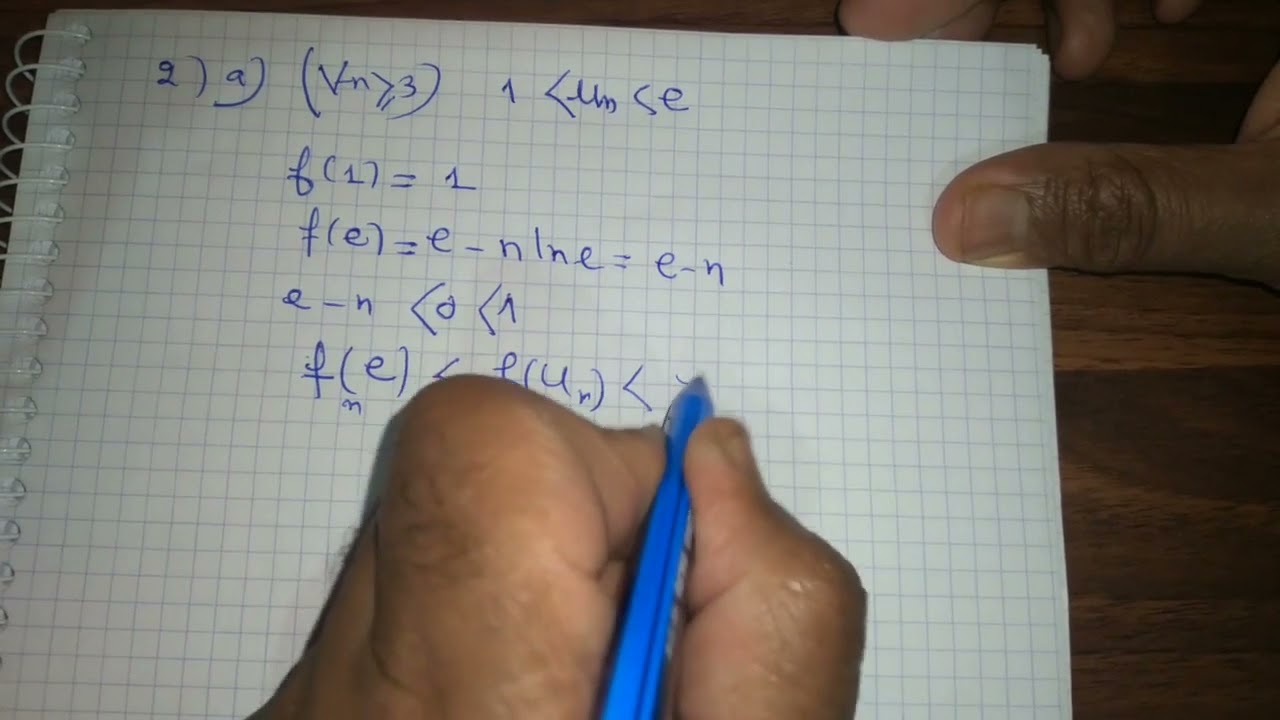 2) a) (∀n⩾3) 1 < Un < e
f(1) = 1
f(e) = e - n ln e = e - n
e - n < 0 < 1
fn(e) < f(Un) <